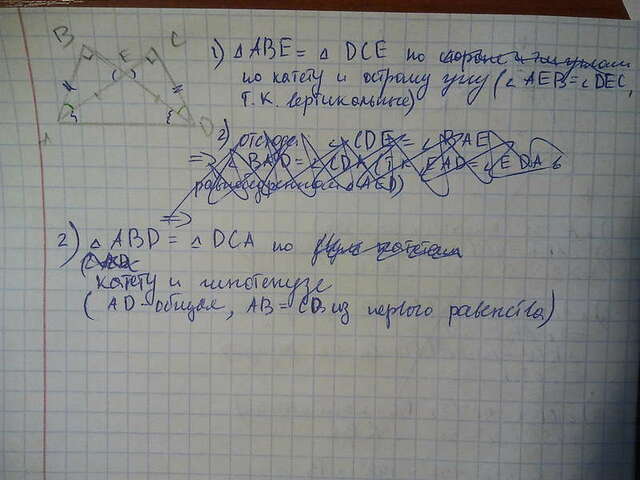 B E C
A D
1) △ ABE = △ DCE по стороне и двум углам
по катету и острому углу (∠ AEB = ∠ DEC,
т.к. вертикальные)
2) отсюда ∠ CDE = ∠ BAE
=> ∠ BAD = ∠ CDA (т.к. ∠ EAD = ∠ EDA в
равнобедренном △ AED)
=>
2) △ ABD = △ DCA по двум катетам
катету и гипотенузе
( AD - общая, AB = CD из первого равенства)